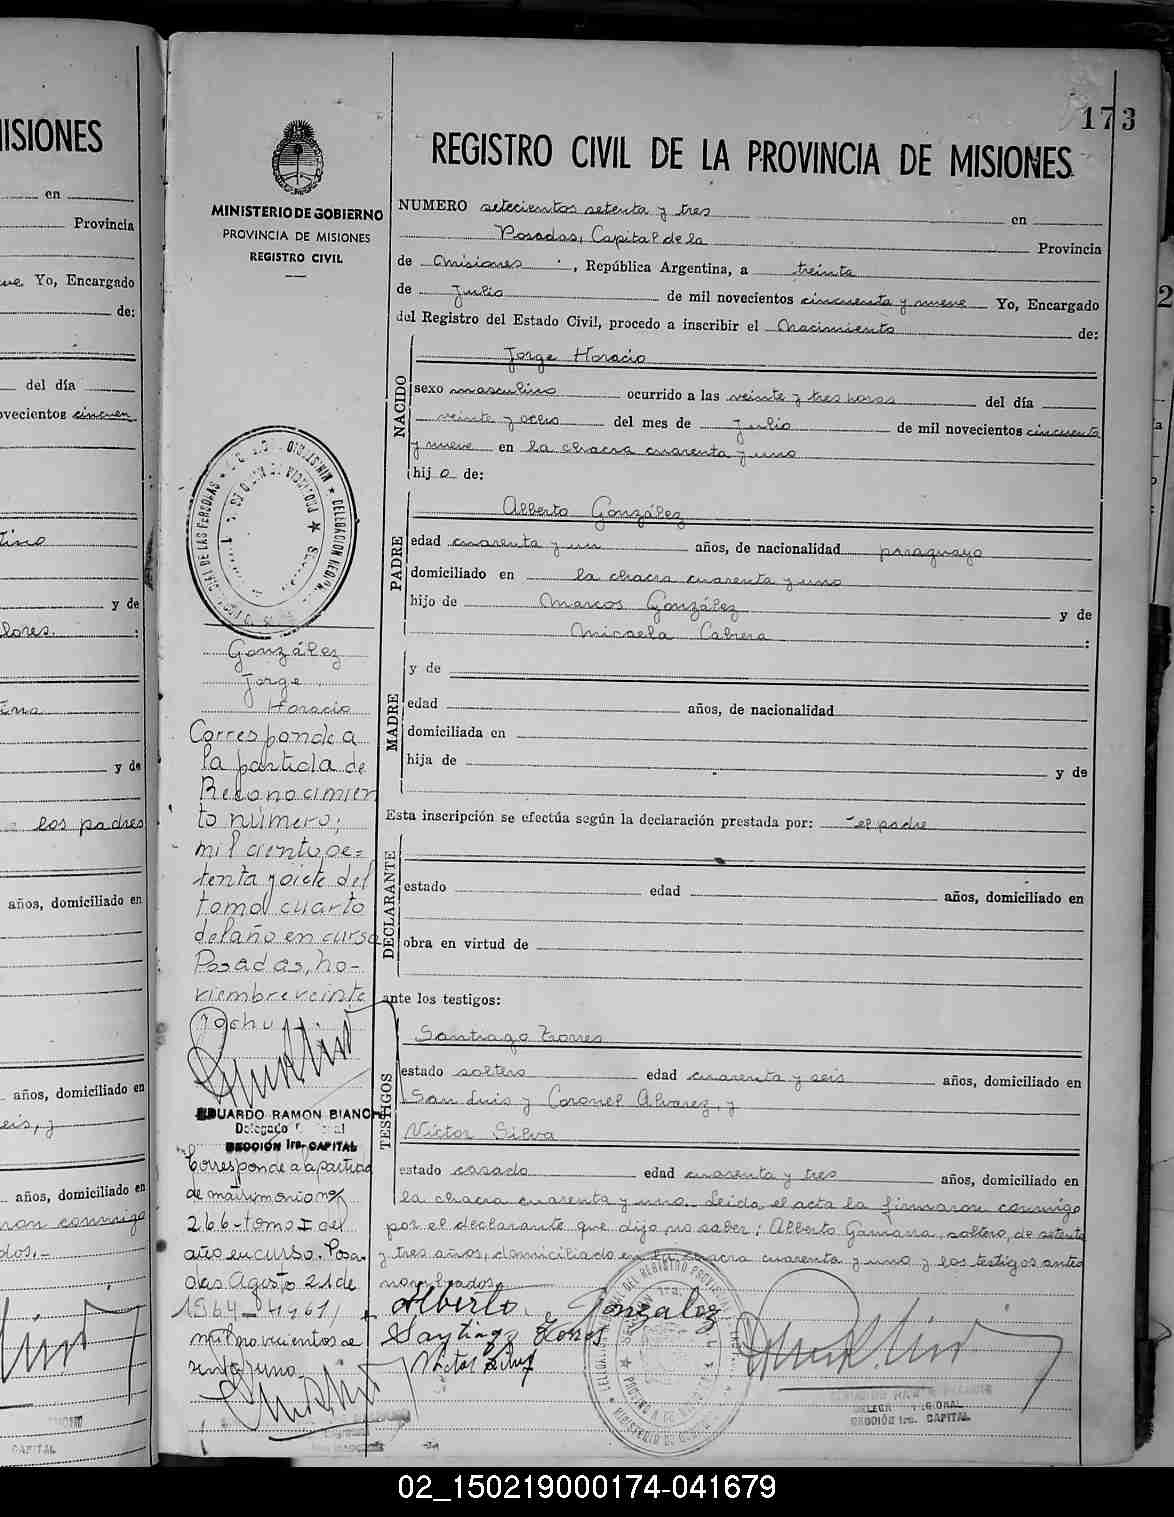 ISIONES
en
Provincia
Yo, Encargado
de:
del día
ovecientos cincuen
tino
y de
lores.
y de
los padres
años, domiciliado en
años, domiciliado en
eis, y
años, domiciliado en
conmigo
dos.-
CAPITAL
173
MINISTERIO DE GOBIERNO
PROVINCIA DE MISIONES
REGISTRO CIVIL
REGISTRO CIVIL DE LA PROVINCIA DE MISIONES
NUMERO setecientos setenta y tres en
Posadas, Capital de la Provincia
de Misiones, República Argentina, a treinta
de Julio de mil novecientos cincuenta y nueve Yo, Encargado
del Registro del Estado Civil, procedo a inscribir el Nacimiento de:
NACIDO
Jorge Horacio
sexo masculino ocurrido a las veinte y tres horas del día
veinte y ocho del mes de Julio de mil novecientos cincuenta
y nueve en la chacra cuarenta y uno
hijo de:
PADRE
Alberto González
edad cuarenta y un años, de nacionalidad paraguayo
domiciliado en la chacra cuarenta y uno
hijo de Marcos González y de
Micaela Cabrera :
MADRE
y de
edad años, de nacionalidad
domiciliada en
hija de y de
Esta inscripción se efectúa según la declaración prestada por: el padre
DECLARANTE
estado edad años, domiciliado en
obra en virtud de
ante los testigos:
TESTIGOS
Santiago Torres
estado soltero edad cuarenta y seis años, domiciliado en
San Luis y Coronel Alvarez, y
Víctor Silva
estado casado edad cuarenta y tres años, domiciliado en
la chacra cuarenta y uno. Leida el acta la firmaron conmigo
por el declarante que dijo no saber; Alberto Gamarra, soltero, de setenta
y tres años, domiciliado en la chacra cuarenta y uno y los testigos antes
nombrados.
Alberto Gonzalez
Santiago Torres
Victor Silva
DELEGADO REGIONAL
SECCIÓN 1ra. CAPITAL
González
Jorge
Horacio
Corresponde a
la partida de
Reconocimien
to número;
mil ciento se=
tenta y siete del
tomo cuarto
del año en curso
Posadas, no-
viembre veinte
y ocho
EDUARDO RAMON BIANCHI
Delegado Regional
SECCIÓN 1ra. CAPITAL
Corresponde a la partida
de matrimonio nº
266-tomo I del
año en curso. Posa-
das Agosto 21 de
1964
mil novecientos se
senta y uno.
02_150219000174-041679